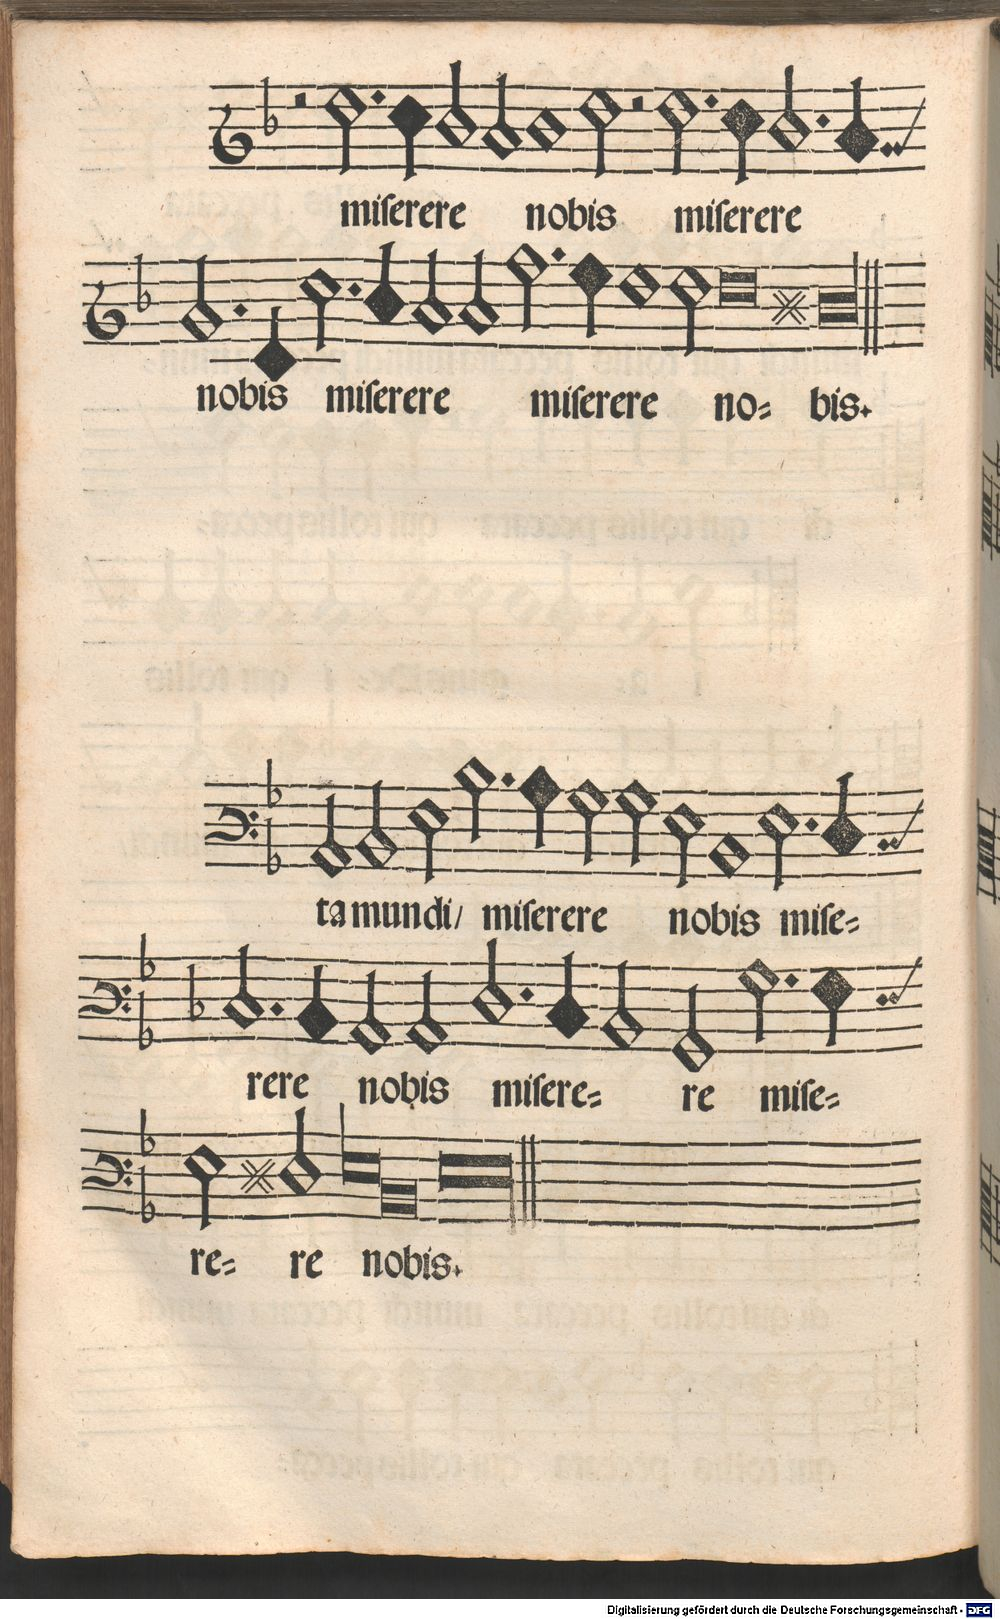 miſerere nobis miſerere
nobis miſerere miſerere no= bis.
ta mundi/ miſerere nobis miſe=
rere nobis miſere= re miſe=
re= re nobis.
Digitalisierung gefördert durch die Deutsche Forschungsgemeinschaft - DFG